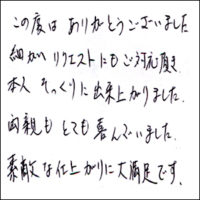 この度は ありがとうございました
細かい リクエストにもご対応頂き
本人 そっくりに出来上がりました.
両親も とても喜んでいました.
素敵な仕上がりに大満足です.